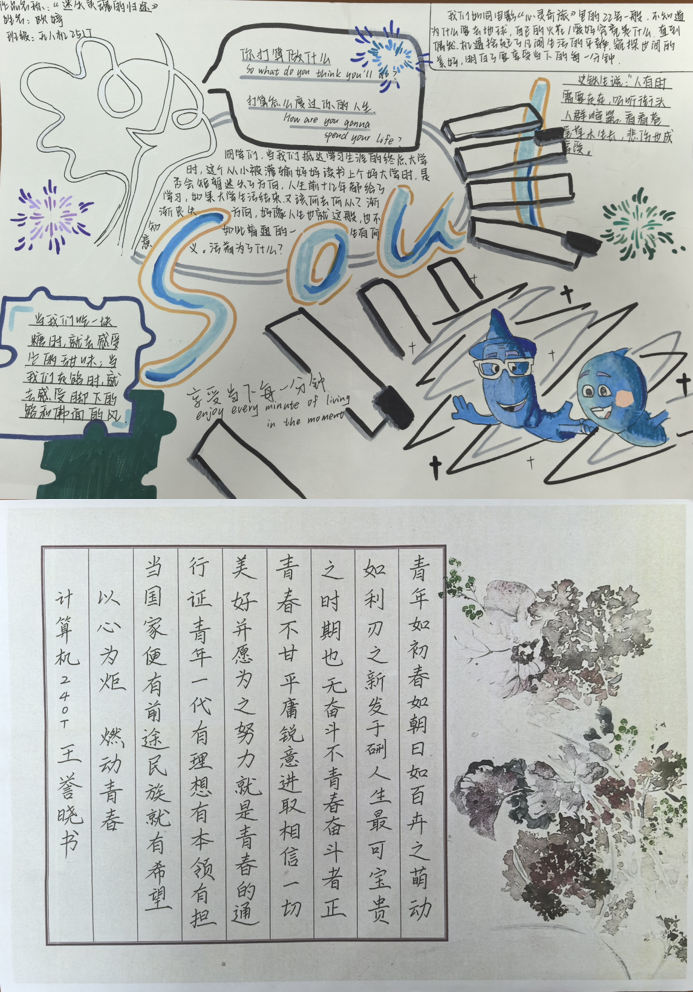 作品名称：“迷失灵魂的归途”
姓名：欧婷
班级：计算机2517
你打算做什么
So what do you think you'll do?
打算怎么度过你的人生
How are you gonna
spend your life?
我们如同电影《心灵奇旅》里的22号一般，不知道
为什么要去地球，自己的火花/爱好究竟是什么，直到
偶然机遇
美好，明白了要享受当下的每一分钟.
史铁生说：“人有时
需要走走，听听街头
人群喧嚣，看看花
草木生长，悲伤也成
同学们，当我们抵达学习生涯的终点大学
时，这个从小被灌输好好读书上个好大学时，是
否会顿时迷失了方向，人生前十几年都给了
学习，如果大学生活结束又该何去何从？渐
渐丧失 方向，好像人生也就这般，也不
知 如此普通的一 生有何
意 义。活着为了什么？
Soul
当我们吃一块
糖时，就去感受
它的甜味；当
我们在路时，就
去感受脚下的
路和拂面的风
享受当下每一分钟
enjoy every minute of living
in the moment
青年如初春如朝日如百卉之萌动
如利刃之新发于硎人生最可宝贵
之时期也无奋斗不青春奋斗者正
青春不甘平庸锐意进取相信一切
美好并愿为之努力就是青春的通
行证青年一代有理想有本领有担
当国家便有前途民族就有希望
以心为炬 燃动青春
计算机240T 王誉晓书